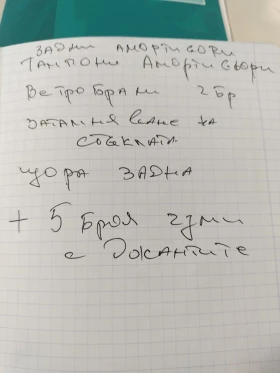 ЗАДНИ АМОРТИСЬОРИ
ТАМПОНИ АМОРТИСЬОРИ
Ветробрани 2 бр
ЗАТЪМНЯВАНЕ НА
СТЪКЛАТА
ЩОРА ЗАДНА
+ 5 броя гуми
с Джантите